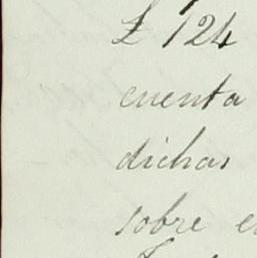 £ 124
cuenta
dichas
sobre